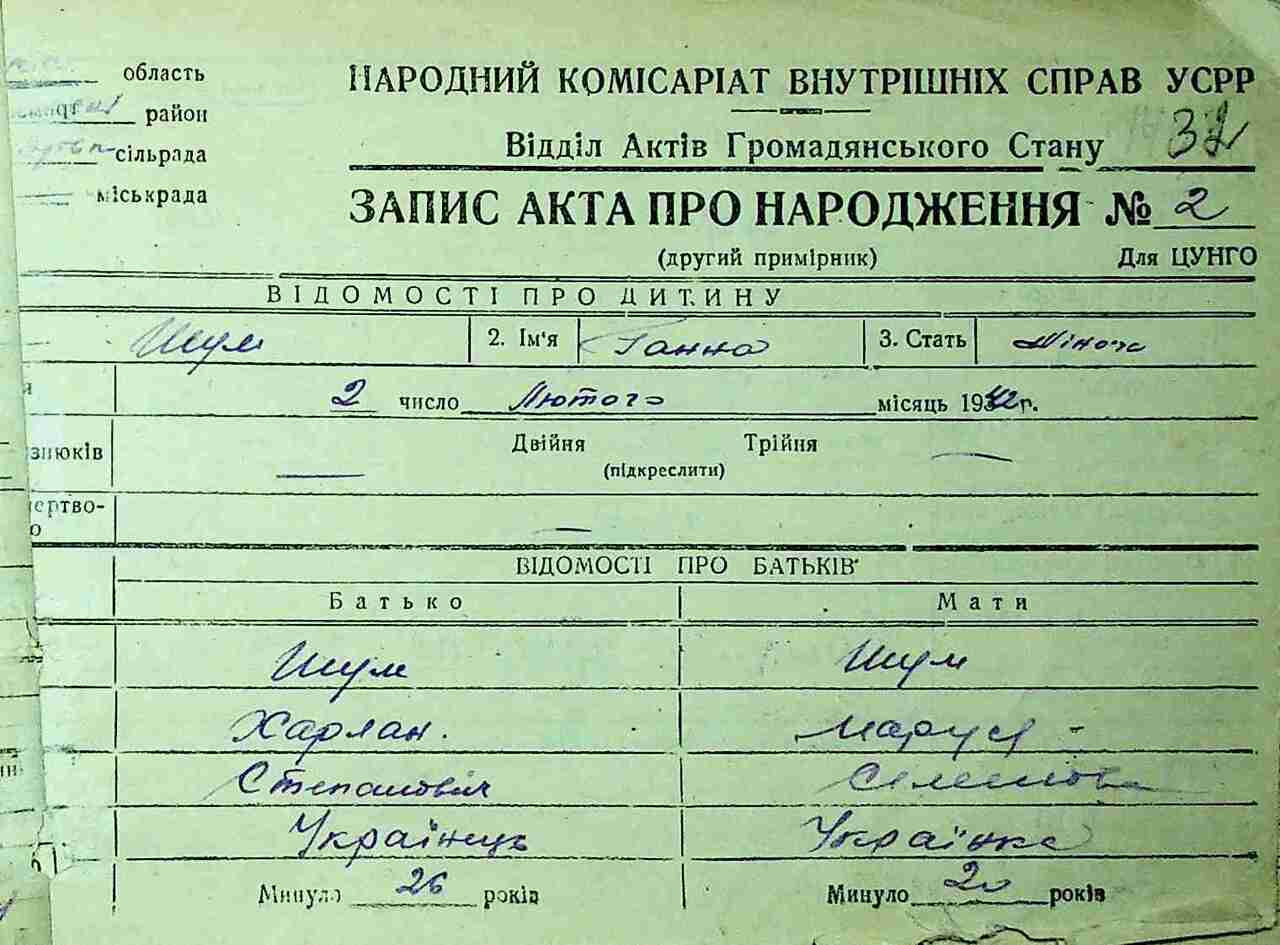 область
район
сільрада
міськрада
НАРОДНИЙ КОМІСАРІАТ ВНУТРІШНІХ СПРАВ УСРР
Відділ Актів Громадянського Стану
ЗАПИС АКТА ПРО НАРОДЖЕННЯ № 2
(другий примірник) Для ЦУНГО
ВІДОМОСТІ ПРО ДИТИНУ
Шум 2. Ім'я Ганна 3. Стать Жіноча
2 число Лютого місяць 1942 г.
знюків Двійня Трійня
(підкреслити)
ертво-
о
ВІДОМОСТІ ПРО БАТЬКІВ
Батько Мати
Шум Шум
Харлан. Маруся
Степанович Семенова
Українець Українка
Минуло 26 років Минуло 20 років